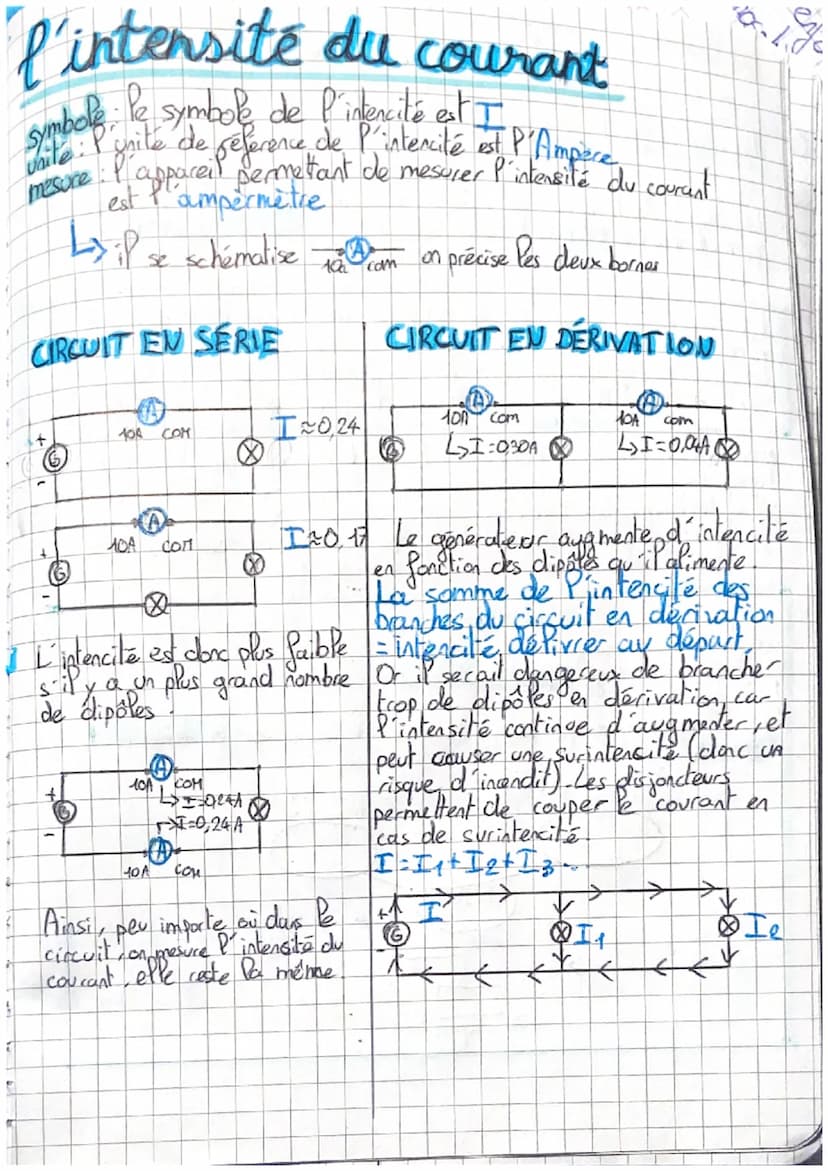 l'intensité du courant
symbole : le symbole de l'intencité est I
unité : l'unité de réference de l'intencité est l'Ampère
mesure : l'appareil permettant de mesurer l'intensité du courant
est l'ampèrmètre
↳ il se schématise A on précise les deux bornes
10A com
CIRCUIT EN SÉRIE
A
10A COM
I ≈ 0,24
+
G
-
A
10A COM
I ≈ 0,17
+
G
-
L'intencité est donc plus faible
s'il y a un plus grand nombre
de dipôles.
A
10A COM
↳ I=0,24A
+
G
↱ I=0,24A
-
A
10A COM
Ainsi, peu importe où dans le
circuit, on mesure l'intensité du
courant, elle reste la même.
CIRCUIT EN DÉRIVATION
A A
10A com 10A com
↳ I=0,30A ↳ I=0,04A
G
Le générateur augmente d'intencité
en fonction des dipôles qu'il alimente.
La somme de l'intencité des
branches du circuit en dérivation
= intencité délivrer au départ.
Or il serait dangereux de brancher
trop de dipôles en dérivation, car
l'intensité continue d'augmenter, et
peut causer une surintencité (donc un
risque d'incendit). Les disjoncteurs
permettent de couper le courant en
cas de surintencité.
I = I1 + I2 + I3...
+ I
G I1 I2
-